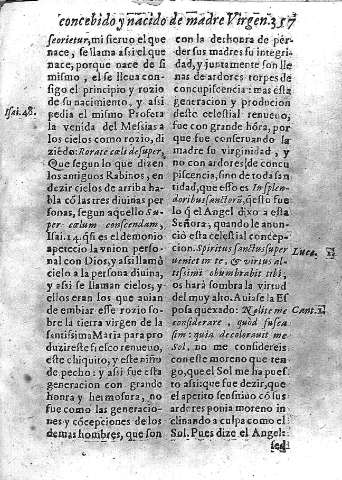 concebido y nacido de madre Virgen. 357
seorietur, mi sieruo el que
nace, se llama assi el que
nace, porque nace de si
mismo, el se lleua consi-
go el principio y rozio
de su nacimiento, y assi
Isai. 48.
pedia el mismo Profeta
la venida del Messias a
los cielos como rozio, di
ziedo: Rorate cœli desuper,
Que segun lo que dizen
los antiguos Rabinos, en
dezir cielos de arriba ha-
bla cõ las tres diuinas per
sonas, segun aquello Su-
per cælum conscendam,
Isai. 14. q̃ es el demonio
apetecio la vnion perso-
nal con Dios, y assi llamò
cielo a la persona diuina,
y assi se llaman cielos, y
ellos eran los que auian
de embiar esse rozio so-
bre la tierra virgen de la
santissima Maria para pro
duzir este fresco renueuo,
este chiquito, y este niño
de pecho: y assi fue esta
generacion con grande
honra y hermosura, no
fue como las generacio-
nes y cõcepciones de los
demas hombres, que son
con la dechonra de pér-
der sus madres su integri-
dad, y juntamente son lle
nas de ardores torpes de
concupiscencia: mas esta
generacion y produciõn
deste celestial renueuo,
fue con grande hõra, por
que fue conseruando la
madre su virginidad, y
no con ardores de concu
piscencia, sino de toda san
tidad, que esso es In splen-
doribus sanctorũ, q̃ esto fue
lo q̃ el Angel dixo a esta
Señora, quando le anun-
ciò esta celestial concep-
cion. Spiritus sanctus super
Luc.
ueniet in te, & virtus al-
tissimi obumbrabit tibi,
os harà sombra la virtud
del muy alto. Auiase la Es
posa quexado: Nolite me
Cant. 1.
considerare, quòd fusca
sim: quia decolorauit me
Sol, no me considereis
con este moreno que ten-
go, que el Sol me ha pues
to assi: que fue dezir, que
el apetito sensitiuo cõ sus
ardores ponia moreno in
clinando a culpa como el
Sol. Pues dize el Angel:
sed